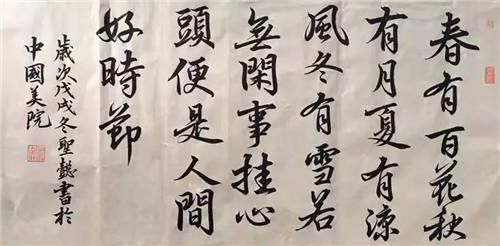 春有百花秋
有月夏有涼
風冬有雪若
無閑事挂心
頭便是人間
好時節
歲次戊戌冬聖懿書於
中國美院